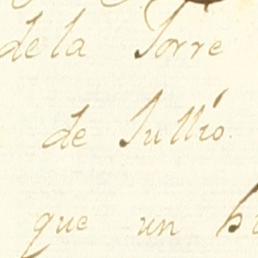 de la Torre
de Jullio.
que un